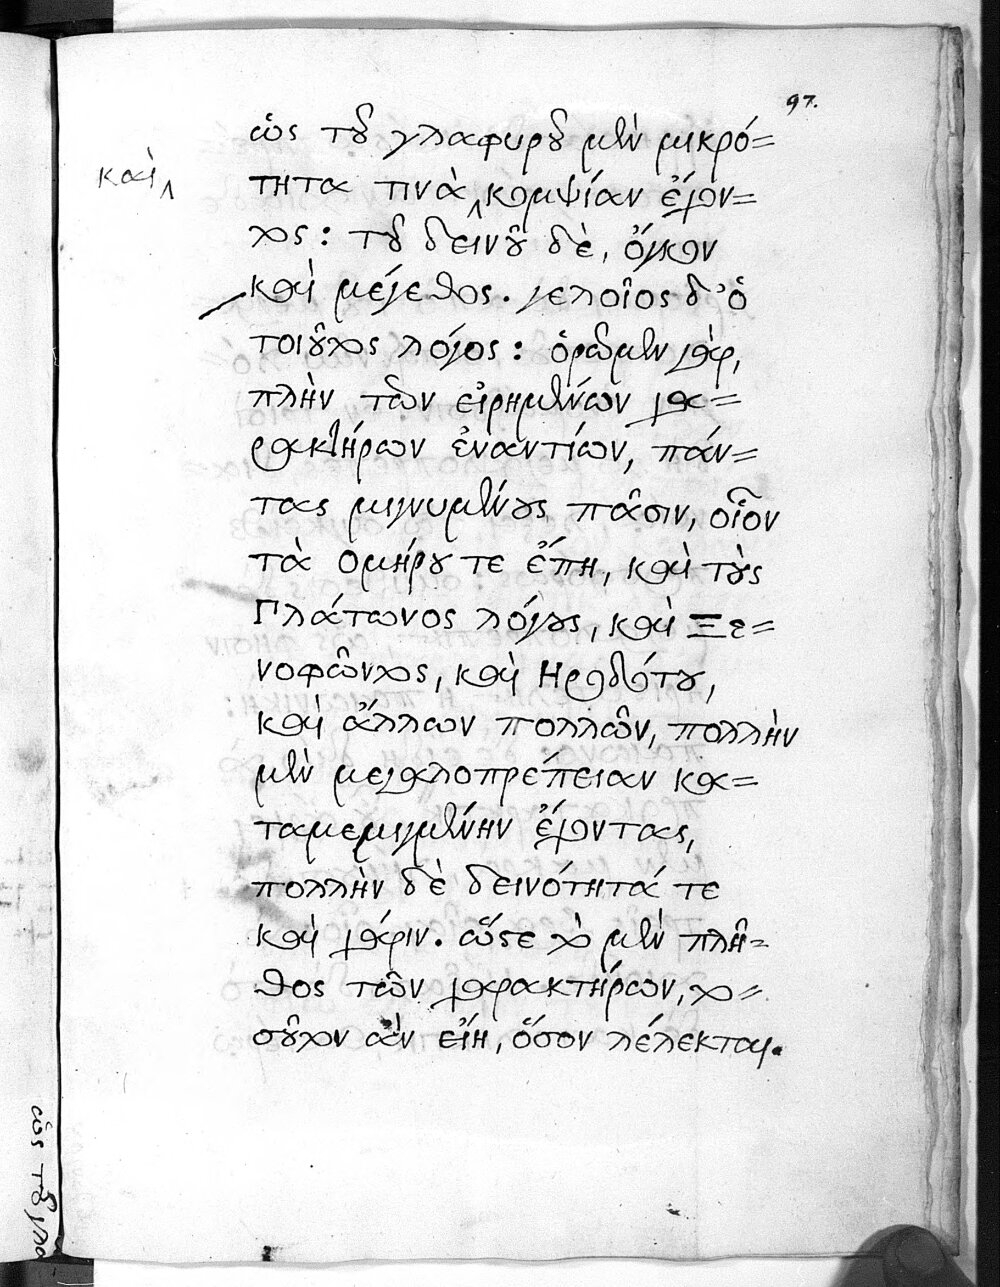 97.
ὡς τοῦ γλαφυροῦ μὲν μικρό=
καὶ
τητα τινὰ κομψίαν ἔχον=
τος: τοῦ δεινοῦ δὲ, ὄγκον
καὶ μέγεθος. γελοῖος δ' ὁ
τοιοῦτος λόγος: ὁρῶμεν γὰρ,
πλὴν τῶν εἰρημένων χα=
ρακτήρων ἐναντίων, πάν=
τας μιγνυμένους πᾶσιν, οἷον
τὰ ομήρου τε ἔπη, καὶ τοὺς
Πλάτωνος λόγους, καὶ Ξε=
νοφῶντος, καὶ Ηροδότου,
καὶ ἄλλων πολλῶν, πολλὴν
μὲν μεγαλοπρέπειαν κα=
ταμεμιγμένην ἔχοντας,
πολλὴν δὲ δεινότητά τε
καὶ χάριν. ὥστε τὸ μὲν πλῆ=
θος τῶν χαρακτήρων, το=
σοῦτον ἂν εἴη, ὅσον λέλεκται.
ὡς τοῦ γλα